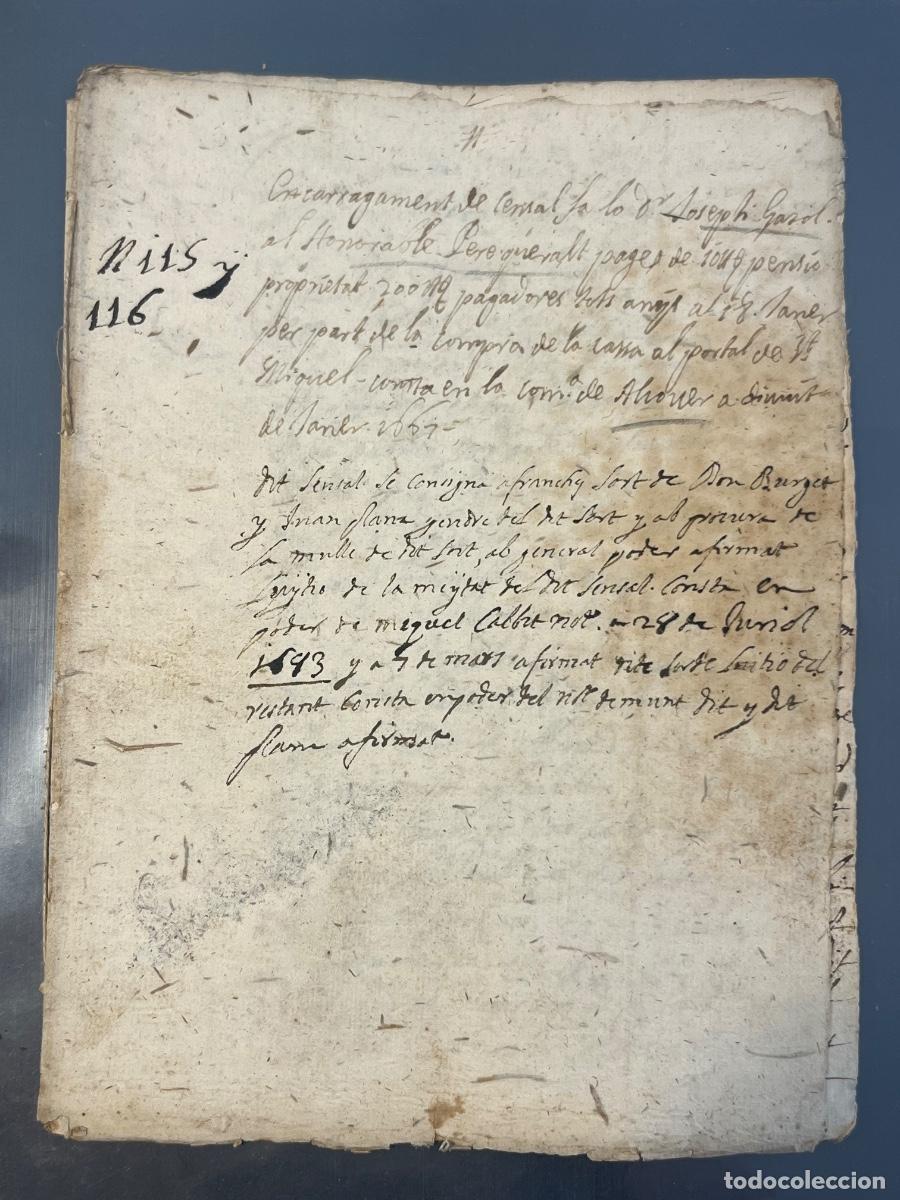 N 115 y
116
Encarragament de Censal fa lo Dr Joseph Gasol
al Honorable Pere queralt pages de 10 ll pensio
proprietat 200 ll pagadores tots anys al 18 Janer
per part de la Compra de la cassa al portal de St
Miquel consta en la de Alcover a divuit
de Janer 1667
dit sensal se consigna a franchy sort de Don Burget
y Juan plana gendre del dit sort y ab procura de
la mulle de dit sort, ab general poder a firmat
de la meytat del dit sensal. Consta en
poder de miquel Calbet not. a 28 de Juriol
1683 y a 7 de mars a firmat del
restant Consta en poder del not. demunt dit y dit
plana a firmat.
todocoleccion